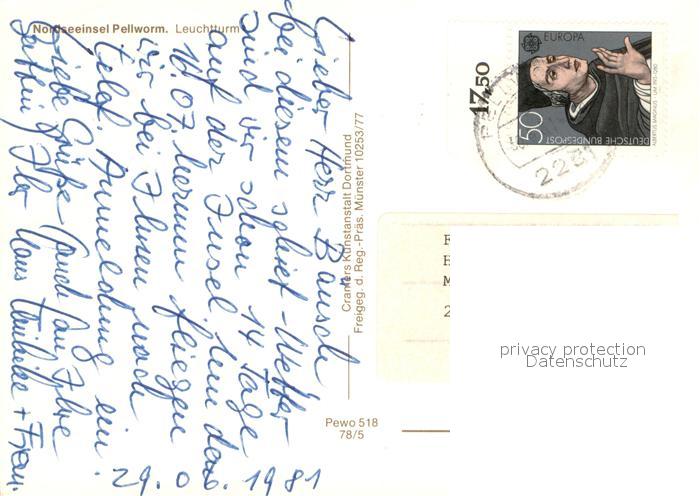 Nordseeinsel Pellworm. Leuchtturm
Lieber Herr Bausch
bei diesem schiet-Wetter
sind wir schon 14 Tage
auf der Insel. Um den
10.07. herum fliegen
wir bei Ihnen nach
telef. Anmeldung ein.
Liebe Grüße (auch an Ihre
Gattin) Ihr Hans + Frau.
29. 0 1981
Cramers Kunstanstalt Dortmund
Freigeg. d. Reg.-Präs. Münster 10253/77
Pewo 518
78/5
17,50
EUROPA
50
DEUTSCHE BUNDESPOST
F
H
M
2
privacy protection
Datenschutz